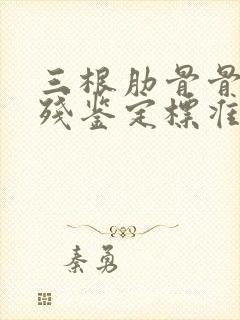 三根肋骨骨
残鉴定标准
秦勇